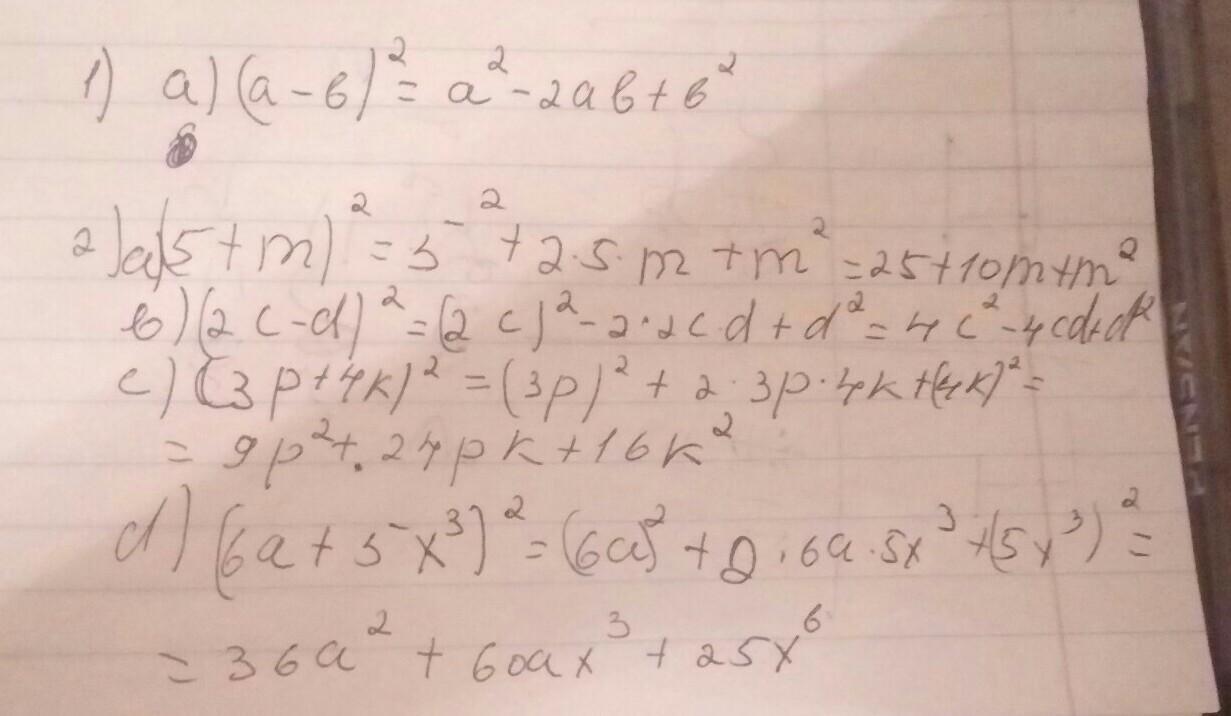 1) a) (a-b)² = a² - 2ab + b²
2) a) (5+m)² = 5² + 2·5·m + m² = 25+10m+m²
b) (2c-d)² = (2c)² - 2·2c·d + d² = 4c² - 4cd+d²
c) (3p+4k)² = (3p)² + 2·3p·4k+(4k)² =
= 9p² + 24pk + 16k²
d) (6a+5x³)² = (6a)² + 2·6a·5x³ + (5x³)² =
= 36a² + 60ax³ + 25x⁶